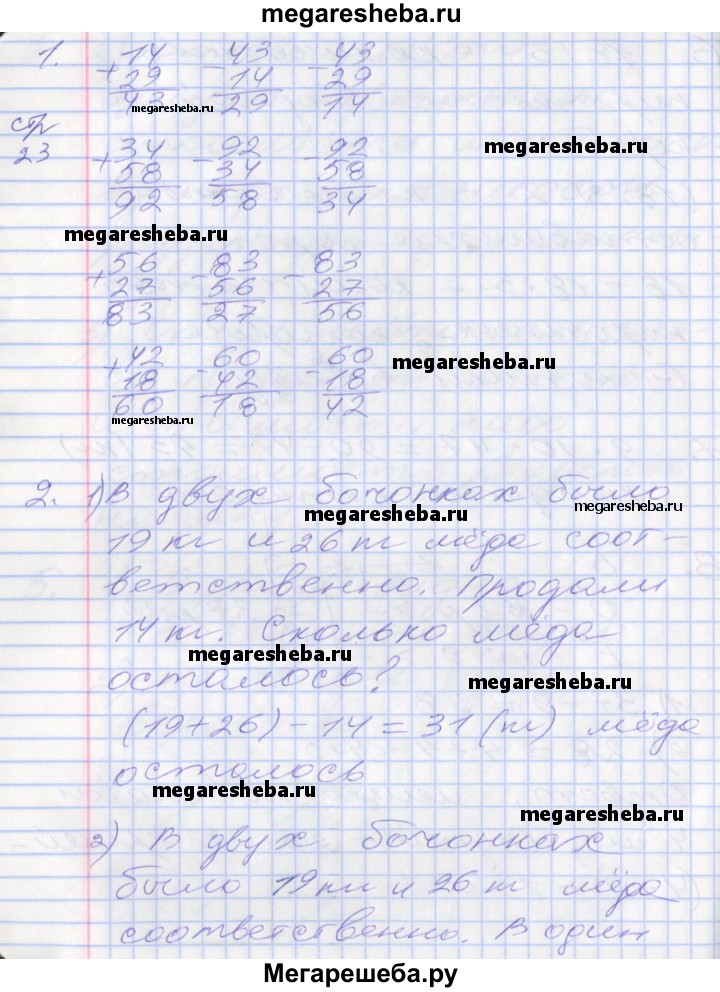 megaresheba.ru
1. 14 43 43
+ 29 - 14 - 29
43 29 14
megaresheba.ru
стр
23 34 92 92
+ 58 - 34 - 58
92 58 34
megaresheba.ru
megaresheba.ru
56 83 83
+ 27 - 56 - 27
83 27 56
42 60 60
+ 18 - 42 - 18
60 18 42
megaresheba.ru
megaresheba.ru
2. 1) В двух бочонках было
megaresheba.ru
megaresheba.ru
19 кг и 26 кг мёда соот-
ветственно. Продали
14 кг. Сколько мёда
megaresheba.ru
осталось?
megaresheba.ru
(19+26)-14=31 (кг) мёда
осталось
megaresheba.ru
megaresheba.ru
2) В двух бочонках
было 19 кг и 26 кг мёда
соответственно. В один
Мегарешеба.ру